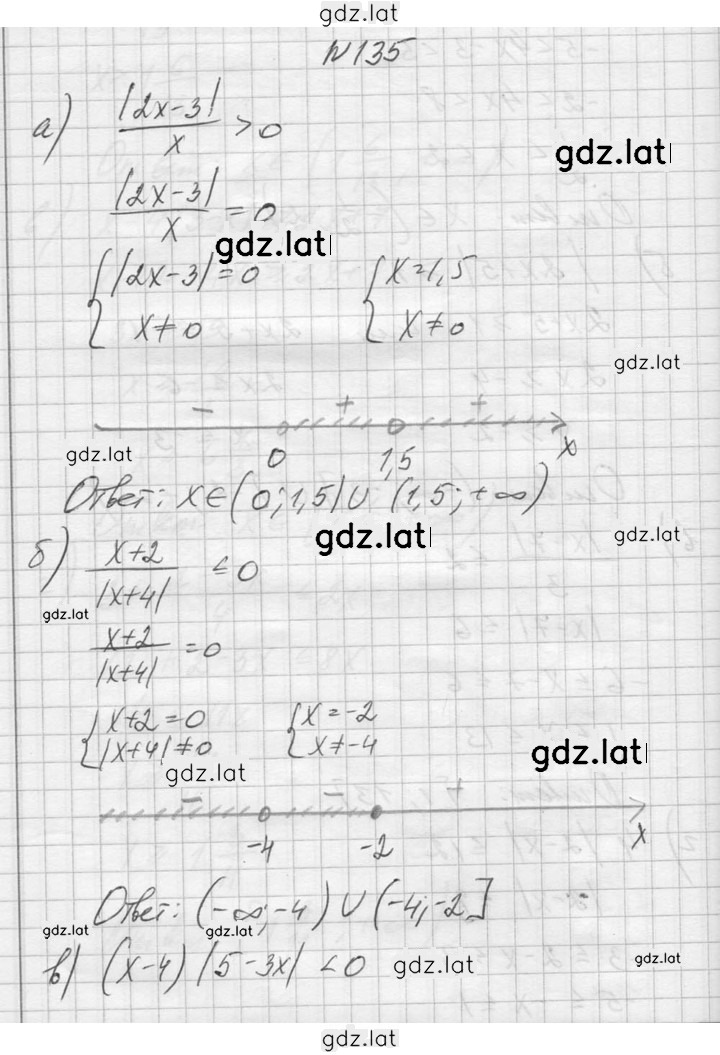 gdz.lat
N135
а) |2x-3|/x > 0
gdz.lat
|2x-3|/x = 0
gdz.lat
{ |2x-3| = 0 { x = 1,5
x ≠ 0 x ≠ 0
gdz.lat
- + +
gdz.lat
0 1,5 x
Ответ: x∈(0; 1,5) ∪ (1,5; +∞)
gdz.lat gdz.lat
б) x+2/|x+4| ≤ 0
gdz.lat
x+2/|x+4| = 0
{ x+2 = 0 { x = -2
|x+4| ≠ 0 x ≠ -4
gdz.lat
gdz.lat
- - +
-4 -2 x
Ответ: (-∞; -4) ∪ (-4; -2]
gdz.lat gdz.lat
в) (x-4) |5-3x| < 0
gdz.lat gdz.lat
gdz.lat